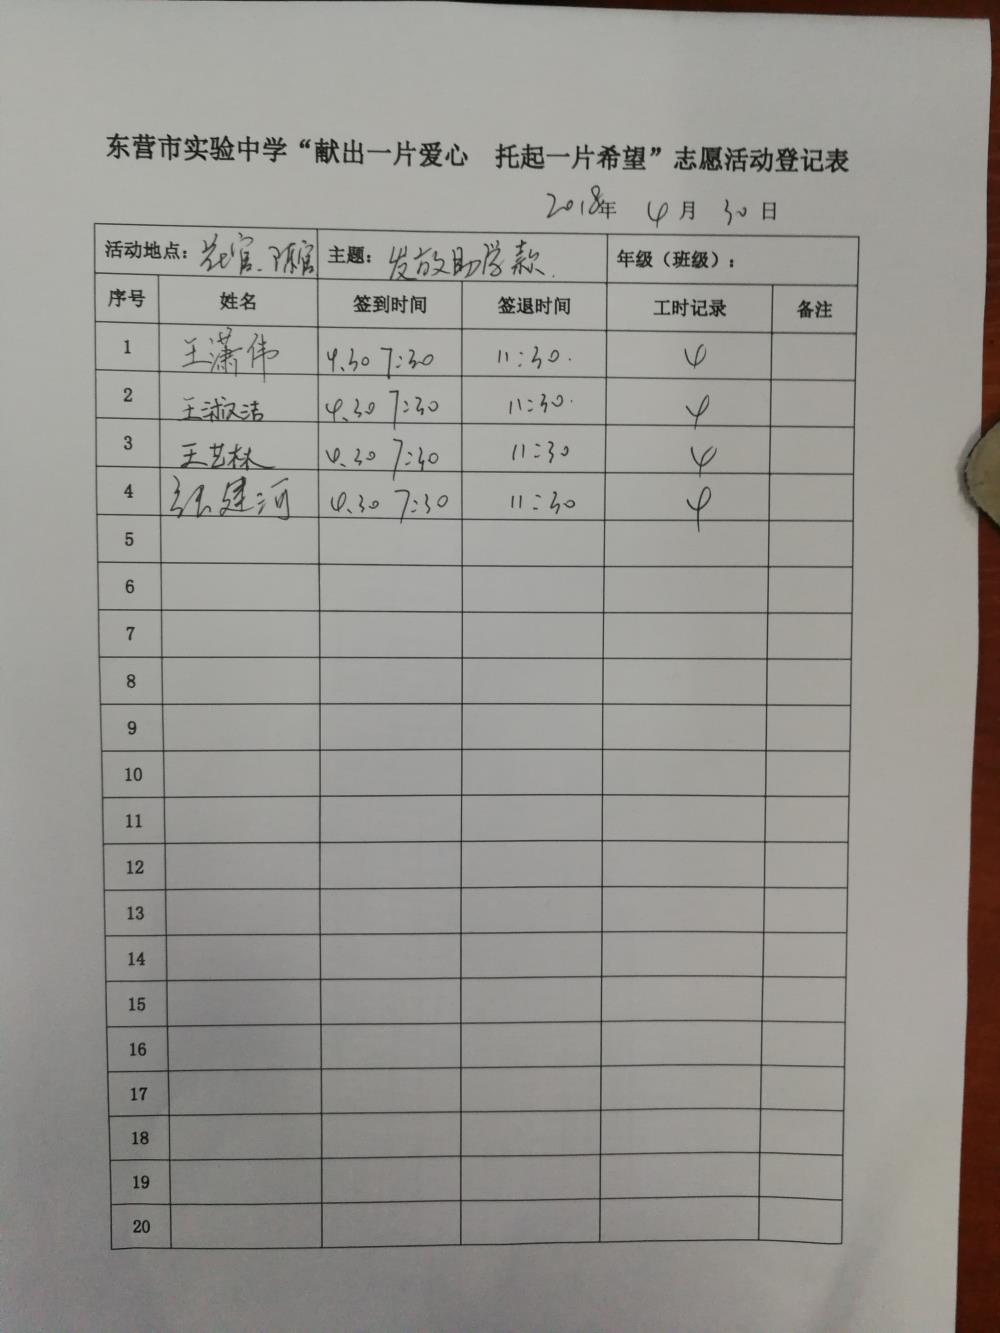 东营市实验中学“献出一片爱心 托起一片希望”志愿活动登记表
2018年 4月 30日
活动地点：花官、陈官 主题：发放助学款. 年级（班级）：
序号 姓名 签到时间 签退时间 工时记录 备注
1 王潇伟 4.30 7:30 11:30. 4
2 王淑洁 4.30 7:30 11:30. 4
3 王艺林 4.30 7:30 11:30 4
4 张建河 4.30 7:30 11:30 4
5
6
7
8
9
10
11
12
13
14
15
16
17
18
19
20